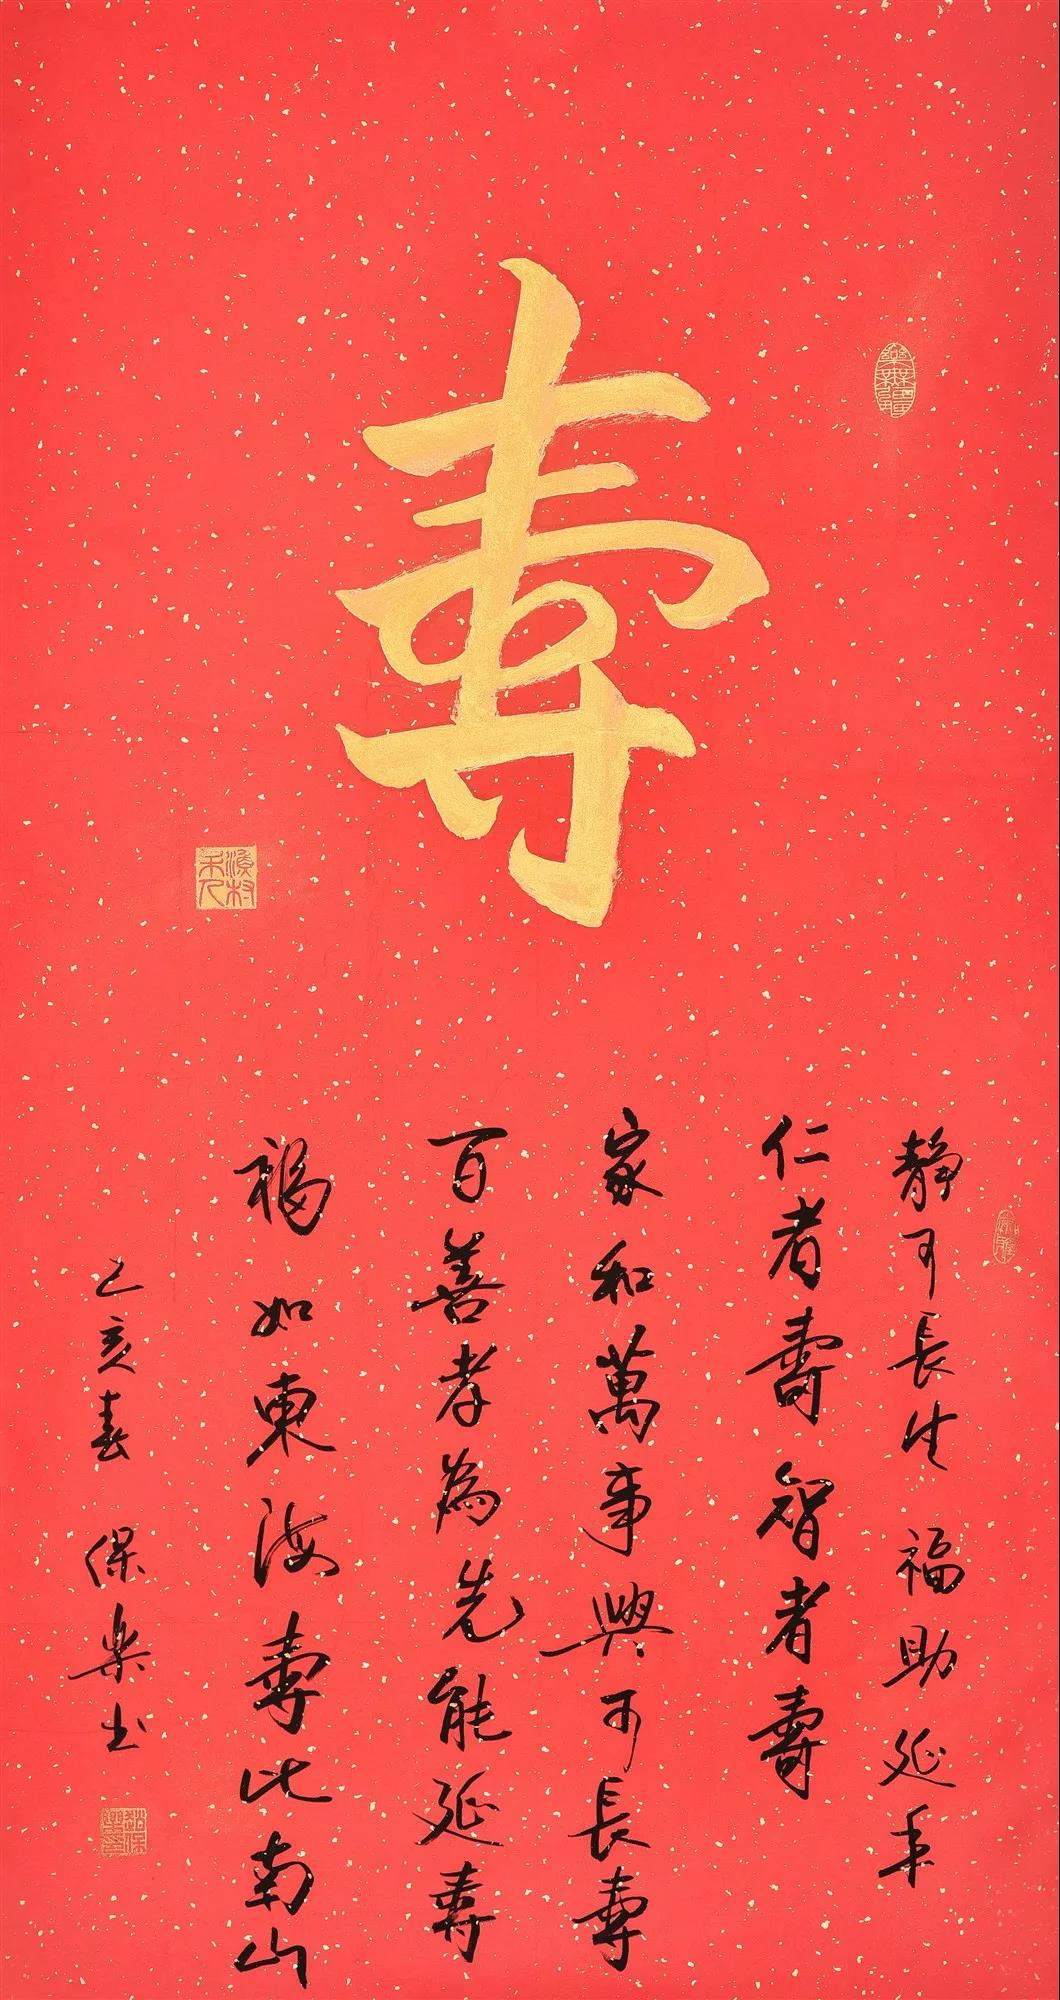 壽
静可長生 福助延年
仁者壽智者壽
家和萬事興可長壽
百善孝為先能延壽
福如東海壽比南山
己亥春 保樂書